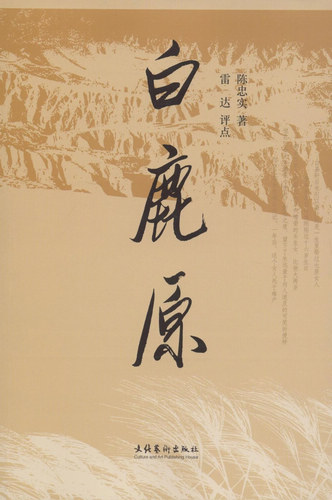 白鹿原
陈忠实 著
雷达 评点
文化艺术出版社
Culture and Art Publishing House